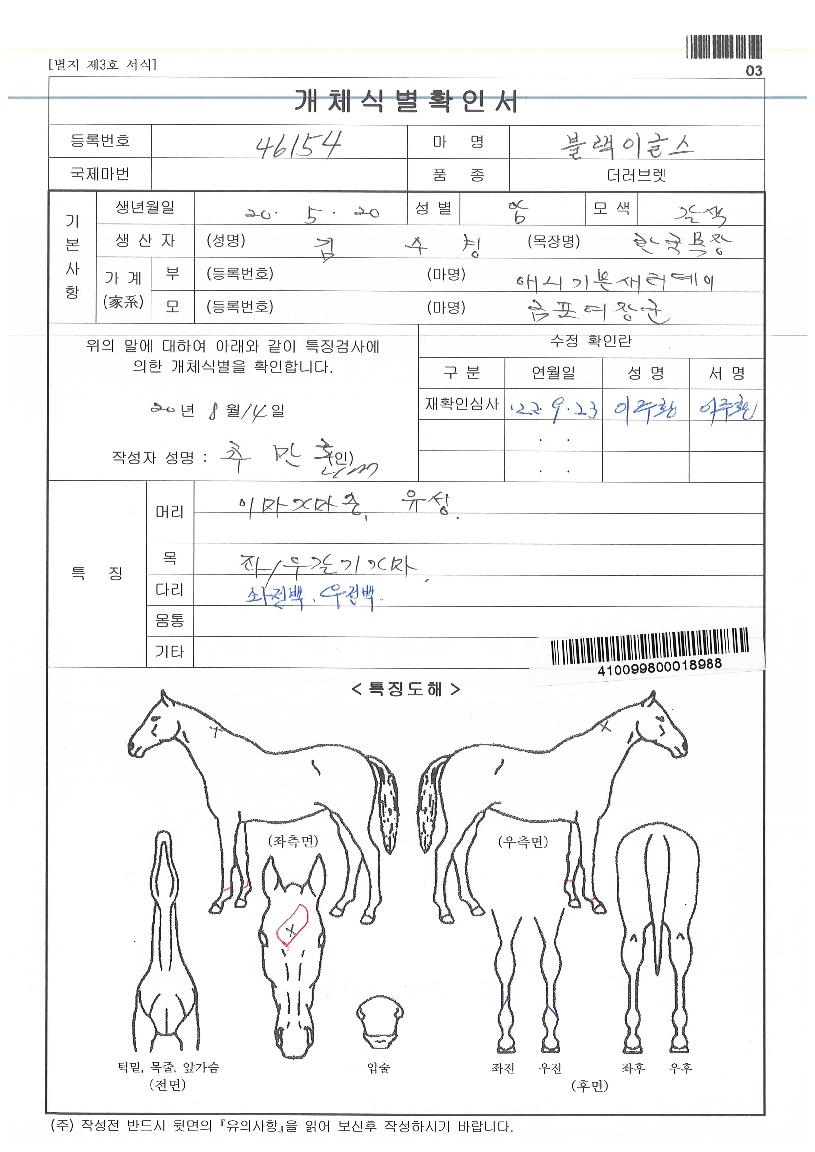 [별지 제3호 서식]
03
개체식별확인서
등록번호 46154 마 명 블랙이글스
국제마번 품 종 더러브렛
기본사항
생년월일 20. 5. 20 성별 암 모색 갈색
생산자 (성명) 김 수 (목장명) 한국목장
가계 (家系) 부 (등록번호) (마명) 애시기본새러데이
모 (등록번호) (마명) 금포여장군
위의 말에 대하여 아래와 같이 특징검사에
의한 개체식별을 확인합니다.
20년 8월 14일
작성자 성명 : 추 만 (인)
수정 확인란
구 분 연월일 성 명 서 명
재확인심사 '22. 9. 23 이주환 이주환
. .
. .
특 징
머리 이마가마중, 유성.
목 좌/우갈기가마.
다리 좌전백. 우전백.
몸통
기타
410099800018988
< 특징도해 >
(좌측면) (우측면)
턱밑, 목줄, 앞가슴
(전면)
입술
좌전 우전 좌후 우후
(후면)
(주) 작성전 반드시 뒷면의 『유의사항』을 읽어 보신후 작성하시기 바랍니다.